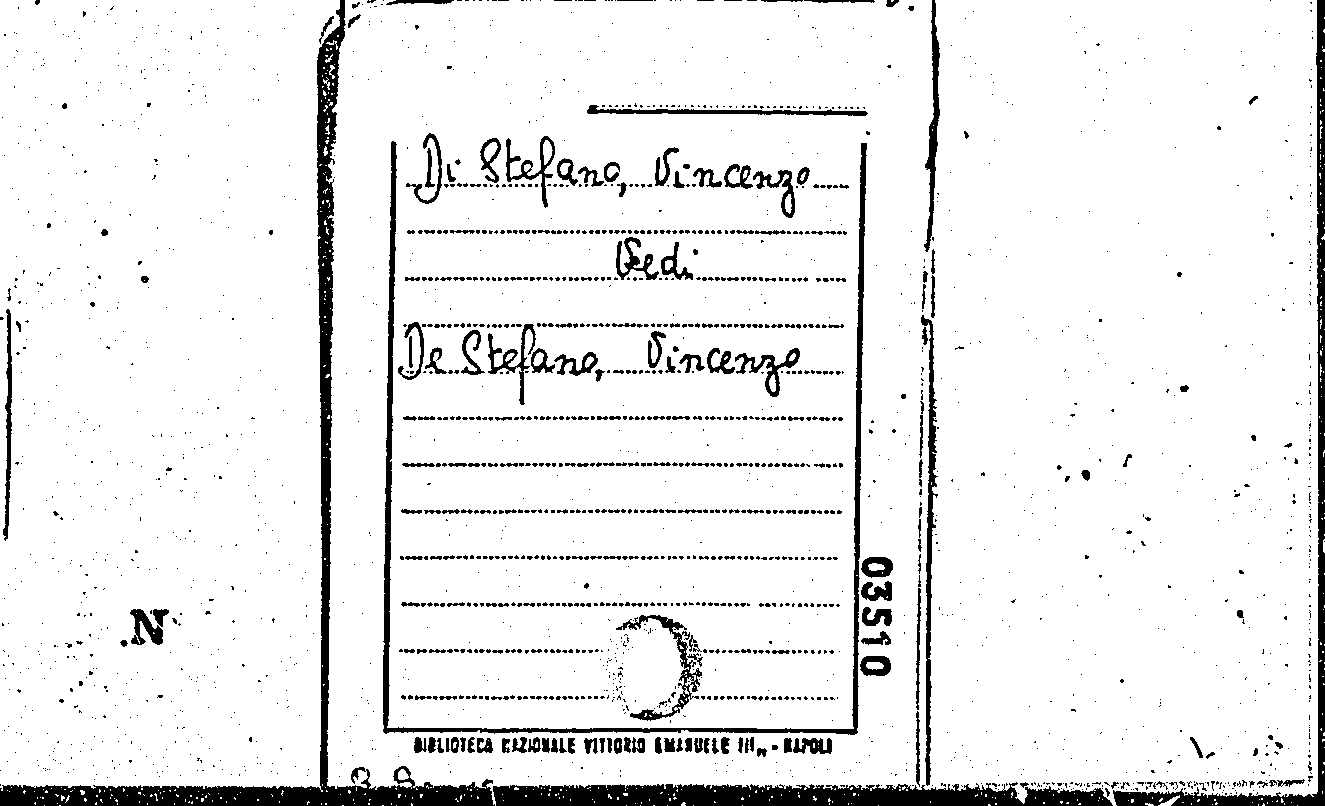 Di Stefano, Vincenzo
Vedi
De Stefano, Vincenzo
03510
N.
BIBLIOTECA NAZIONALE VITTORIO EMANUELE III„ - NAPOLI